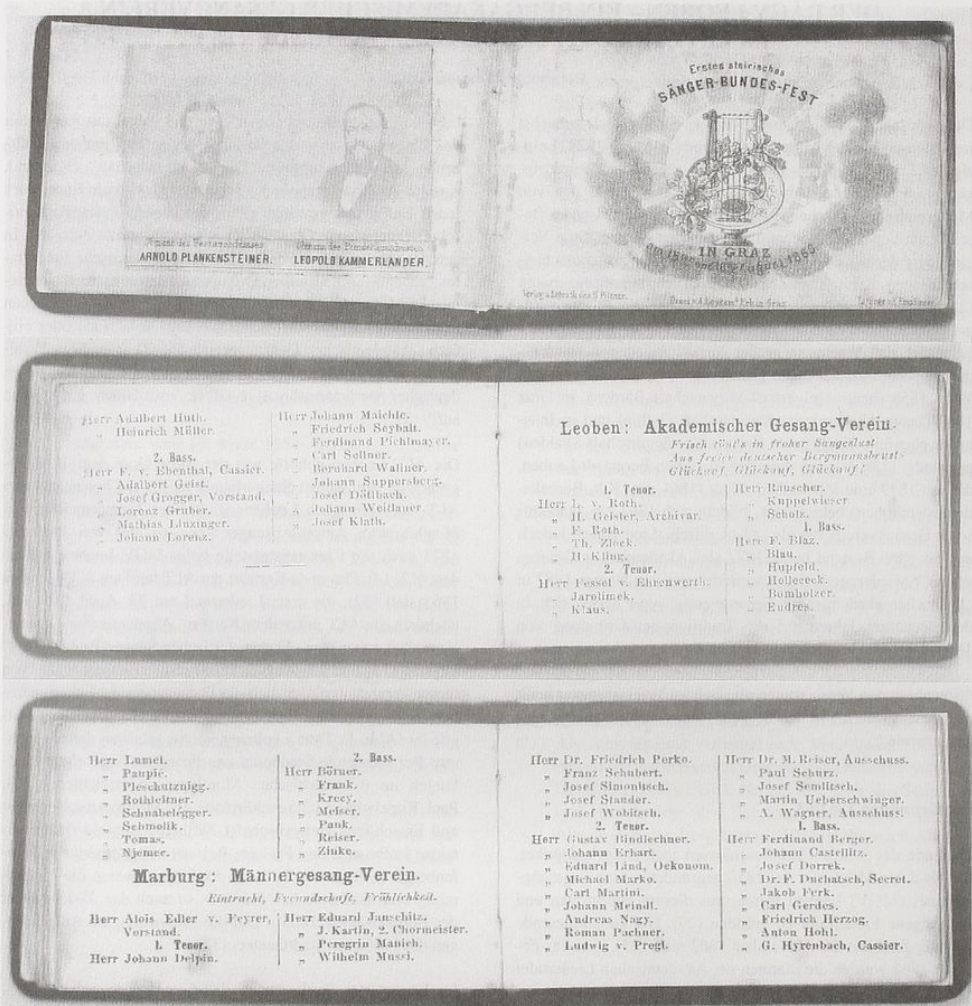 ARNOLD PLANKENSTEINER.
LEOPOLD KAMMERLANDER.
Erstes steirisches
SÄNGER-BUNDES-FEST
IN GRAZ
Herr Adalbert Huth.
„ Heinrich Müller.
2. Bass.
Herr F. v. Ebenthal, Cassier.
„ Adalbert Geist.
„ Josef Grogger, Vorstand.
„ Lorenz Gruber.
„ Mathias Linzinger.
„ Johann Lorenz.
Herr Johann Maichle.
„ Friedrich Seybalt.
„ Ferdinand Pichlmayer.
„ Carl Sollner.
„ Bernhard Wallner.
„ Johann Suppersberg.
„ Josef Döllbach.
„ Johann Weidlauer
„ Josef Klath.
Leoben: Akademischer Gesang-Verein.
Frisch tönt's in froher Sangeslust
Aus freier deutscher Bergmannsbrust:
Glückauf, Glückauf, Glückauf!
1. Tenor.
Herr L. v. Roth.
„ H. Geister, Archivar.
„ F. Roth.
„ Th. Zlock.
„ H. Kling.
2. Tenor.
Herr Fessel v. Ehrenwerth.
„ Jarolimek.
„ Klaus.
Herr Rauscher.
„ Kuppelwieser
„ Scholz.
1. Bass.
Herr F. Blaz.
„ Blau.
„ Hupfeld.
„ Holleceek.
„ Bomholzer.
„ Endres.
Herr Lumei.
„ Paupié.
„ Pleschutznigg.
„ Rothleitner.
„ Schnabelegger.
„ Schmolik.
„ Tomas.
„ Njemec.
2. Bass.
Herr Börner.
„ Frank.
„ Krecy.
„ Meiser.
„ Pauk.
„ Reiser.
„ Zinke.
Marburg: Männergesang-Verein.
Eintracht, Freundschaft, Fröhlichkeit.
Herr Alois Edler v. Feyrer,
Vorstand.
1. Tenor.
Herr Johann Delpin.
Herr Eduard Janschitz.
„ J. Kartin, 2. Chormeister.
„ Peregrin Manich.
„ Wilhelm Mussi.
Herr Dr. Friedrich Perko.
„ Franz Schubert.
„ Josef Simonitsch.
„ Josef Stander.
„ Josef Wobitsch.
2. Tenor.
Herr Gustav Bindlechner.
„ Johann Erhart.
„ Eduard Lind, Oekonom.
„ Michael Marko.
„ Carl Martini.
„ Johann Meindl.
„ Andreas Nagy.
„ Roman Pachner.
„ Ludwig v. Pregl.
Herr Dr. M. Reiser, Ausschuss.
„ Paul Schurz.
„ Josef Semlitsch.
„ Martin Ueberschwinger.
„ A. Wagner, Ausschuss.
1. Bass.
Herr Ferdinand Berger.
„ Johann Castellitz.
„ Josef Dorrek.
„ Dr. F. Duchatsch, Secret.
„ Jakob Ferk.
„ Carl Gerdes.
„ Friedrich Herzog.
„ Anton Hohl.
„ G. Hyrenbach, Cassier.